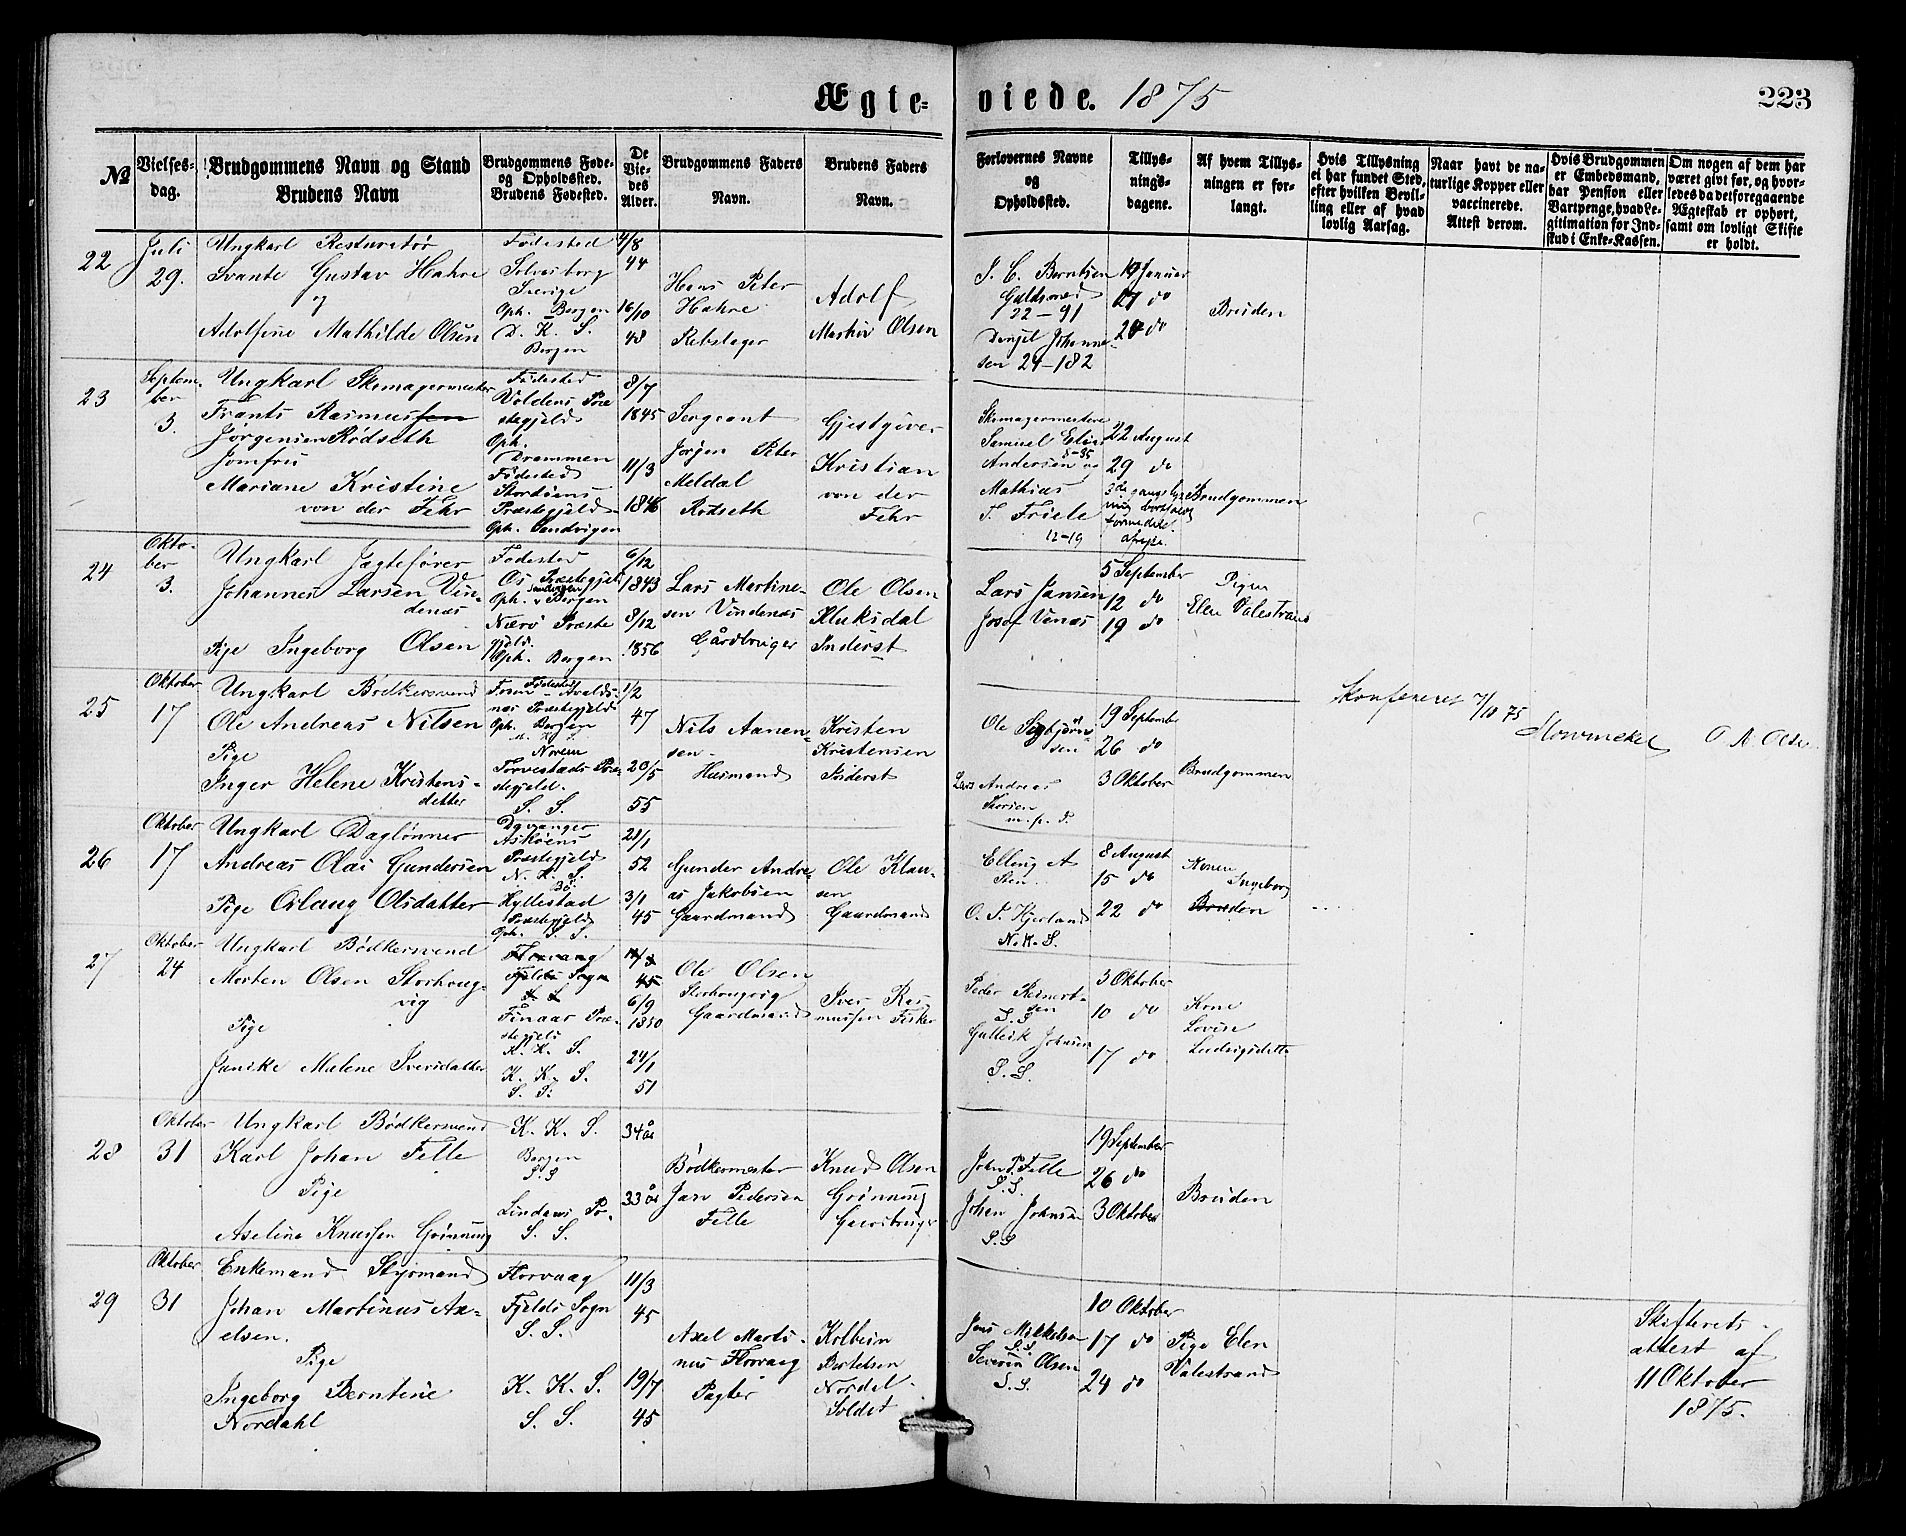 Ægte-viede. 1875
223
№
Vielses-dag.
Brudgommens Navn og Stand
Brudens Navn
Brudgommens Føde-
og Opholdssted.
Brudens Fødested.
De
Vie-
des
Alder.
Brudgommens Faders
Navn.
Brudens Faders
Navn.
Forlovernes Navne
og
Opholdssted.
Tillys-
nings-
dagene.
Af hvem Tillys-
ningen er for-
langt.
Hvis Tillysning
ei har fundet Sted,
efter hvilken Bevil-
ling eller af hvad
lovlig Aarsag.
Naar havt de na-
turlige Kopper eller
vaccinerede.
Attest derom.
Hvis Brudgommen
er Embedsmand,
har Pension eller
Vartpenge, hvad Le-
gitimation for Ind-
skud i Enke-Kassen.
Om nogen af dem har
været givt før, og hvor-
ledes da det foregaaende
Ægteskab er ophørt,
samt om lovligt Skifte
er holdt.
22
Juli
29.
Ungkarl Resturatør
Svante Gustav Hahre
og
Adolfine Mathilde Olsen
Fødested
Sølvesborg
Sverige
Oph. Bergen
D. K. S.
Bergen
4/8
44
16/10
48
Hans Peter
Hahre
Rebslager
Adolf
Martin Olsen
J. C. Berntsen
Guldsmed
22-91
Daniel Johanne-
sen 24-182
Januar
17 do
24 do
Bruden
23
Septem-
ber
3.
Ungkarl Skomagermester
Frants Rasmussen
Jørgensen Rødseth
Jomfru
Mariane Kristine
von der Fehr
Fødested
Voldens Præ-
stegjeld
Oph.
Drammen
Fødested
Stordøens
Præstegjeld
Oph. Sandvigen
8/7
1845
11/3
1846
Sergeant
Jørgen Peter
Meldal
Rødseth
Gjestgiver
Kristian
von der
Fehr
Skomagermestere
Samuel Elias
Andersen og
5-35
Mathias
T. Friele
12-19
22 August
29 do
3de gangs lys-
ning
Brudgommen
24
Okto-
ber
3.
Ungkarl Jagtefører
Johannes Larsen Vin-
denæs
Pige Ingeborg Olsen
Fødested
Os Præstegjeld
Oph. Bergen
Nærø Præste
gjeld.
Oph. Bergen
6/12
1843
8/12
1856
Lars Martine-
sen Vindenæs
Gårdbruger
Ole Olsen
Kluksdal
Inderst
Lars Jansen
Josef Vinæs
5 September
12 do
19 do
Pigen
Elen Valestrand
25
Oktober
17
Ungkarl Bødkersvend
Ole Andreas Nilsen
Pige
Inger Helene Kristens-
datter
Fødested
Avalds-
næs Præstegjeld
Oph. Bergen
Torvestads Præ-
stegjeld.
S. S.
1/2
47
20/5
55
Nils Aanen-
sen-
Husmand
Kristen
Kristensen
Inderst
Ole Sigbjørn-
sen
Lars Andreas
19 September
26 do
3 Oktober
Brudgommen
Konfereret 7/10 75
O. A. Olsen
26
Oktober
17
Ungkarl Daglønner
Andreas Olai Gundersen
Pige Orlaug Olsdatter
Askøens
Præstegjeld
N. K. S.
Hyllestad
Præstegjeld
Oph. S. S.
21/1
52
3/1
45
Gunder Andre-
as Jakobsen
Gaardmand
Ole Klau-
sen
Gaardmand
Elling A
Sten
O. T. Hjerland
N. K. S.
8 August
15 do
22 do
Konen
Ingeborg
Bruden
27
Oktober
24
Ungkarl Bødkersvend
Morten Olsen Storhoug-
vig
Pige
Janike Malene Iversdatter
Florvaag
Fjelds Sogn
S. S.
Finaas Præ-
stegjeld
K. K. S.
K. K. S.
S. S.
45
6/9
1850
24/1
51
Ole Olsen
Storhougvig
Gaardmand
Iver Ras-
mussen Fisker
Peder Reinert-
sen
S. S
Gulleik Johnsen
S. S.
3 Oktober
10 do
17 do
Kone
Lovise
Ludvigsdatter
28
Oktober
31
Ungkarl Bødkersvend
Karl Johan Felle
Pige
Axeline Knudsen Grønning
K. K. S.
Bergen
S. S
Lindaas Pr.
S. S.
34 år
33 år
Bødkermester
Jan Pedersen
Felle
Knud Olsen
Grønning
Gaardbruger
John P. Felle
S. S.
Johan Johnsen
S. S
19 September
26 do
3 Oktober
Bruden
29
Oktober
31
Enkemand Styrmand
Johan Martinus Ax-
elsen.
Pige
Ingeborg Berntine
Nordahl
Florvaag
Fjelds Sogn
S. S.
K. K. S.
S. S.
11/3
45
19/7
45
Axel Marti-
nus Florvaag
Pagter
Kolbein
Bertelsen
Nordal
Soldat
Jens Mikkelsen
S. S
Severin Olsen
S. S.
10 Oktober
17 do
24 do
Pige Elen
Valestrand
Skifterets-
attest af
11 Oktober
1875.